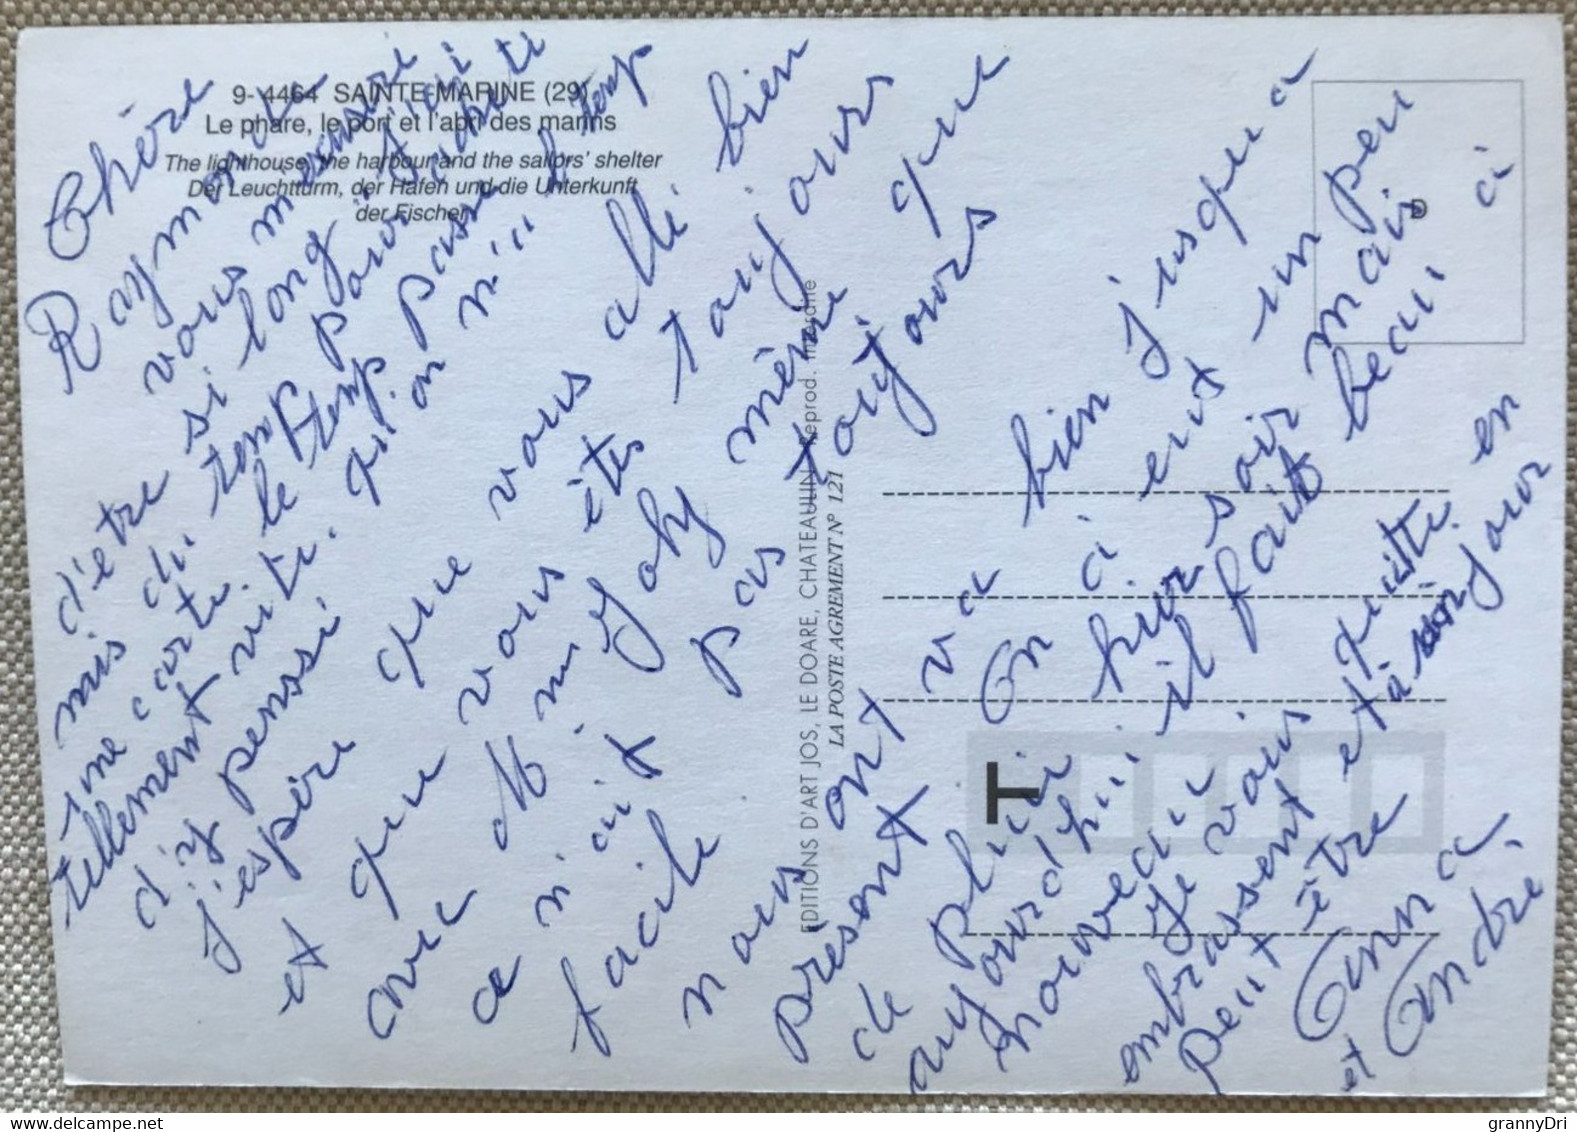 9- 4464 SAINTE-MARINE (29)
Le phare, le port et l'abri des marins
The lighthouse, the harbour and the sailors' shelter
Der Leuchtturm, der Hafen und die Unterkunft
der Fischer
Chère
Raymonde
vous m'excuseré
d'être si long
mis du temp pour
une carte. le temp passe
tellement vite. qu'on n'a
d'y pensé
J'espère que vous allé bien
et que vous êtes toujours
avec
ce n'ait pas même que
facile pas toujours
nous ont va bien jusqu a
présent On a eut un peu
de pluie hier soir mais
aujourd'hui il fait beau a
nouveau
Je vais quitte en
embrassent et à un jour
peut être
Anna
et André
EDITIONS D'ART JOS, LE DOARE, CHATEAULIN Reprod. interdite
LA POSTE AGREMENT N° 121
T
D
grannyDri